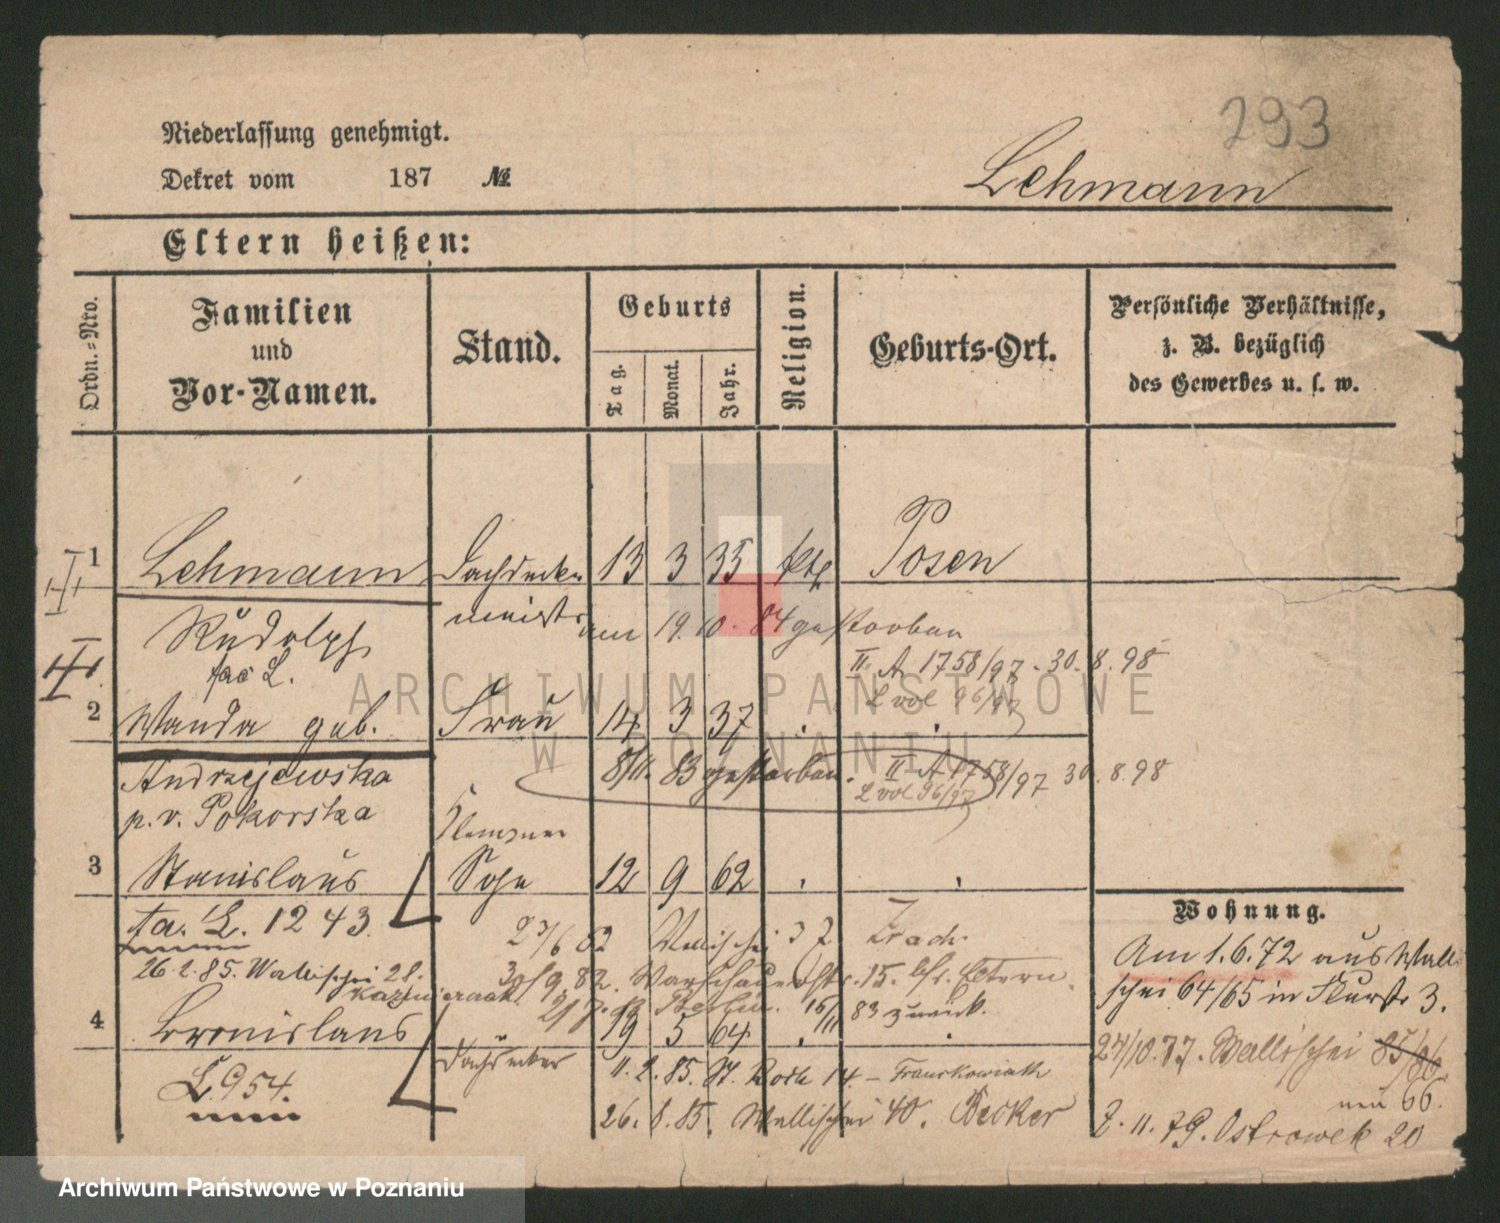 293
Niederlassung genehmigt.
Dekret vom 187 №
Lehmann
Eltern heißen:
Ordn.-Nro.
Familien und Vor-Namen.
Stand.
Geburts
Tag.
Monat.
Jahr.
Religion.
Geburts-Ort.
Persönliche Verhältnisse,
z. B. bezüglich
des Gewerbes u. s. w.
1 Lehmann Dachdecker 13 3 35 kth Posen
Rudolph meister am 19. 10. 84 gestorben
II. A. 1758/97 - 30. 8. 98
L vol 96/97
2 Wanda geb. Frau 14 3 37 . .
Andrzejewska 8/11. 83 gestorben. II A 1758/97 30. 8. 98
L vol 96/97
p. v. Pokorska
Klempner
3 Stanislaus Sohn 12 9 62 . .
fa. L. 1243.
26.2.85. Wallischei 28.
Kazmierczak
4 Bronislaus " 19 5 64 . .
L. 954.
Dachdecker 11. 2. 85. St. Roch 14. - Franskowiak
26. 8. 85. Wallischei 40. Becker
Wohnung.
Am 1. 6. 72 aus Walli
schei 64/65 in Flurstr 3.
27/10. 77. Wallischei 85/86
neu 66.
2. 11. 79. Ostrowek 20
ARCHIWUM PAŃSTWOWE
W POZNANIU
Archiwum Państwowe w Poznaniu